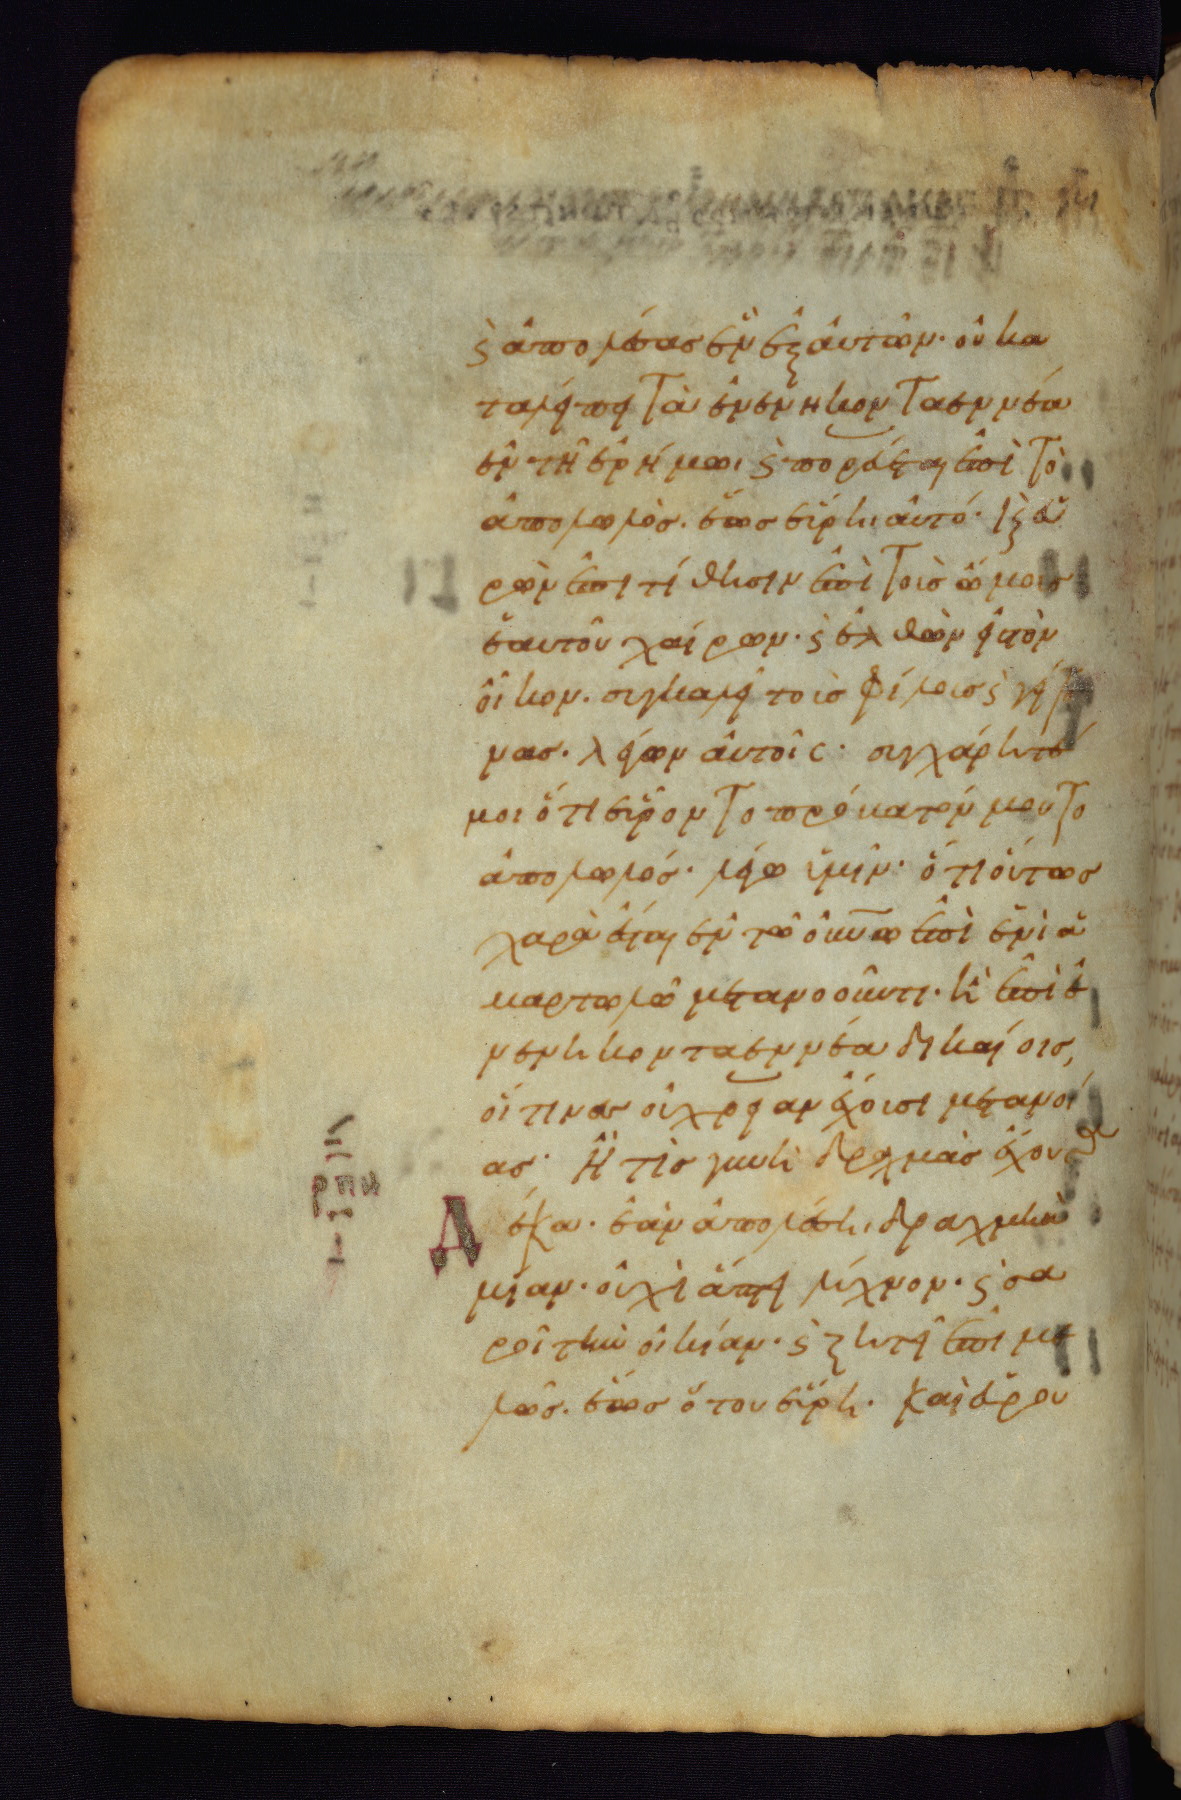 ς ἀπολέσας ἓν ἐξ ἀυτῶν· οὐ κα
ταλείπει τὰ ἐνενηκονταεννέα
ἐν τῇ ἐρήμωι ς πορεύεται ἐπὶ τὸ
ἀπολωλὸς. ἕως εὕρη αὐτό· κ εὑ
ρὼν ἐπιτίθησιν ἐπὶ τοὶς ὤμοις
ἑαυτοῦ χαίρων· ς ἐλθὼν εἰς τὸν
οἶκον. συγκαλεῖ τοὶς φίλοις ς γεί
νας· λέγων αὐτοῖς· συγχάρητέ
μοι ὅτι εὗρον το πρόβατόν μου το
ἀπολωλός· λέγω ὑμῖν· ὅτι οὕτως
χαρὰ ἔσται ἐν τῶ οὐνω ἐπὶ ἑνὶ ἁ
μαρτωλῶ μετανοοῦντι· ἢ ἐπὶ ἐ
νενηκονταεννέα δικαίοις,
οἵτινες οὐ χρείαν ἔχουσι μετανοί
ας· Ἢ τίς γυνὴ δραχμὰς ἔχουσα
Δέκα· ἐὰν ἀπολέση δραχμὴν
μίαν· οὐχὶ ἅπτει λύχνον· ς σα
ροῖ τὴν οἰκίαν· ς ζητεῖ ἐπιμε
λῶς. ἕως ὅτου εὕρη· καὶ εὑροῦ
ρπη